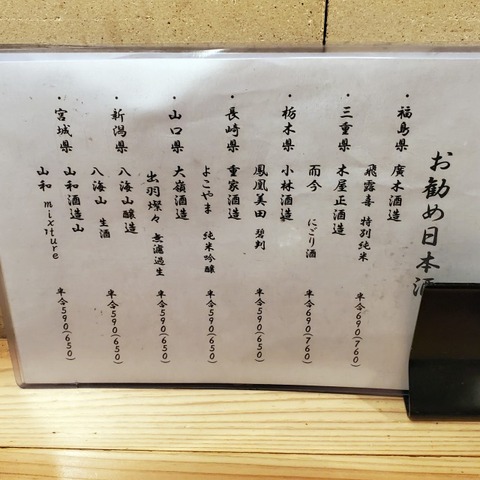 お勧め日本酒
・福島県 廣木酒造
飛露喜 特別純米 半合690(760)
・三重県 木屋正酒造
而今 にごり酒 半合690(760)
・栃木県 小林酒造
鳳凰美田 碧判 半合590(650)
・長崎県 重家酒造
よこやま 純米吟醸 半合590(650)
・山口県 大嶺酒造
出羽燦々 無濾過生 半合590(650)
・新潟県 八海山醸造
八海山 生酒 半合590(650)
・宮城県 山和酒造山
山和 mixture 半合590(650)